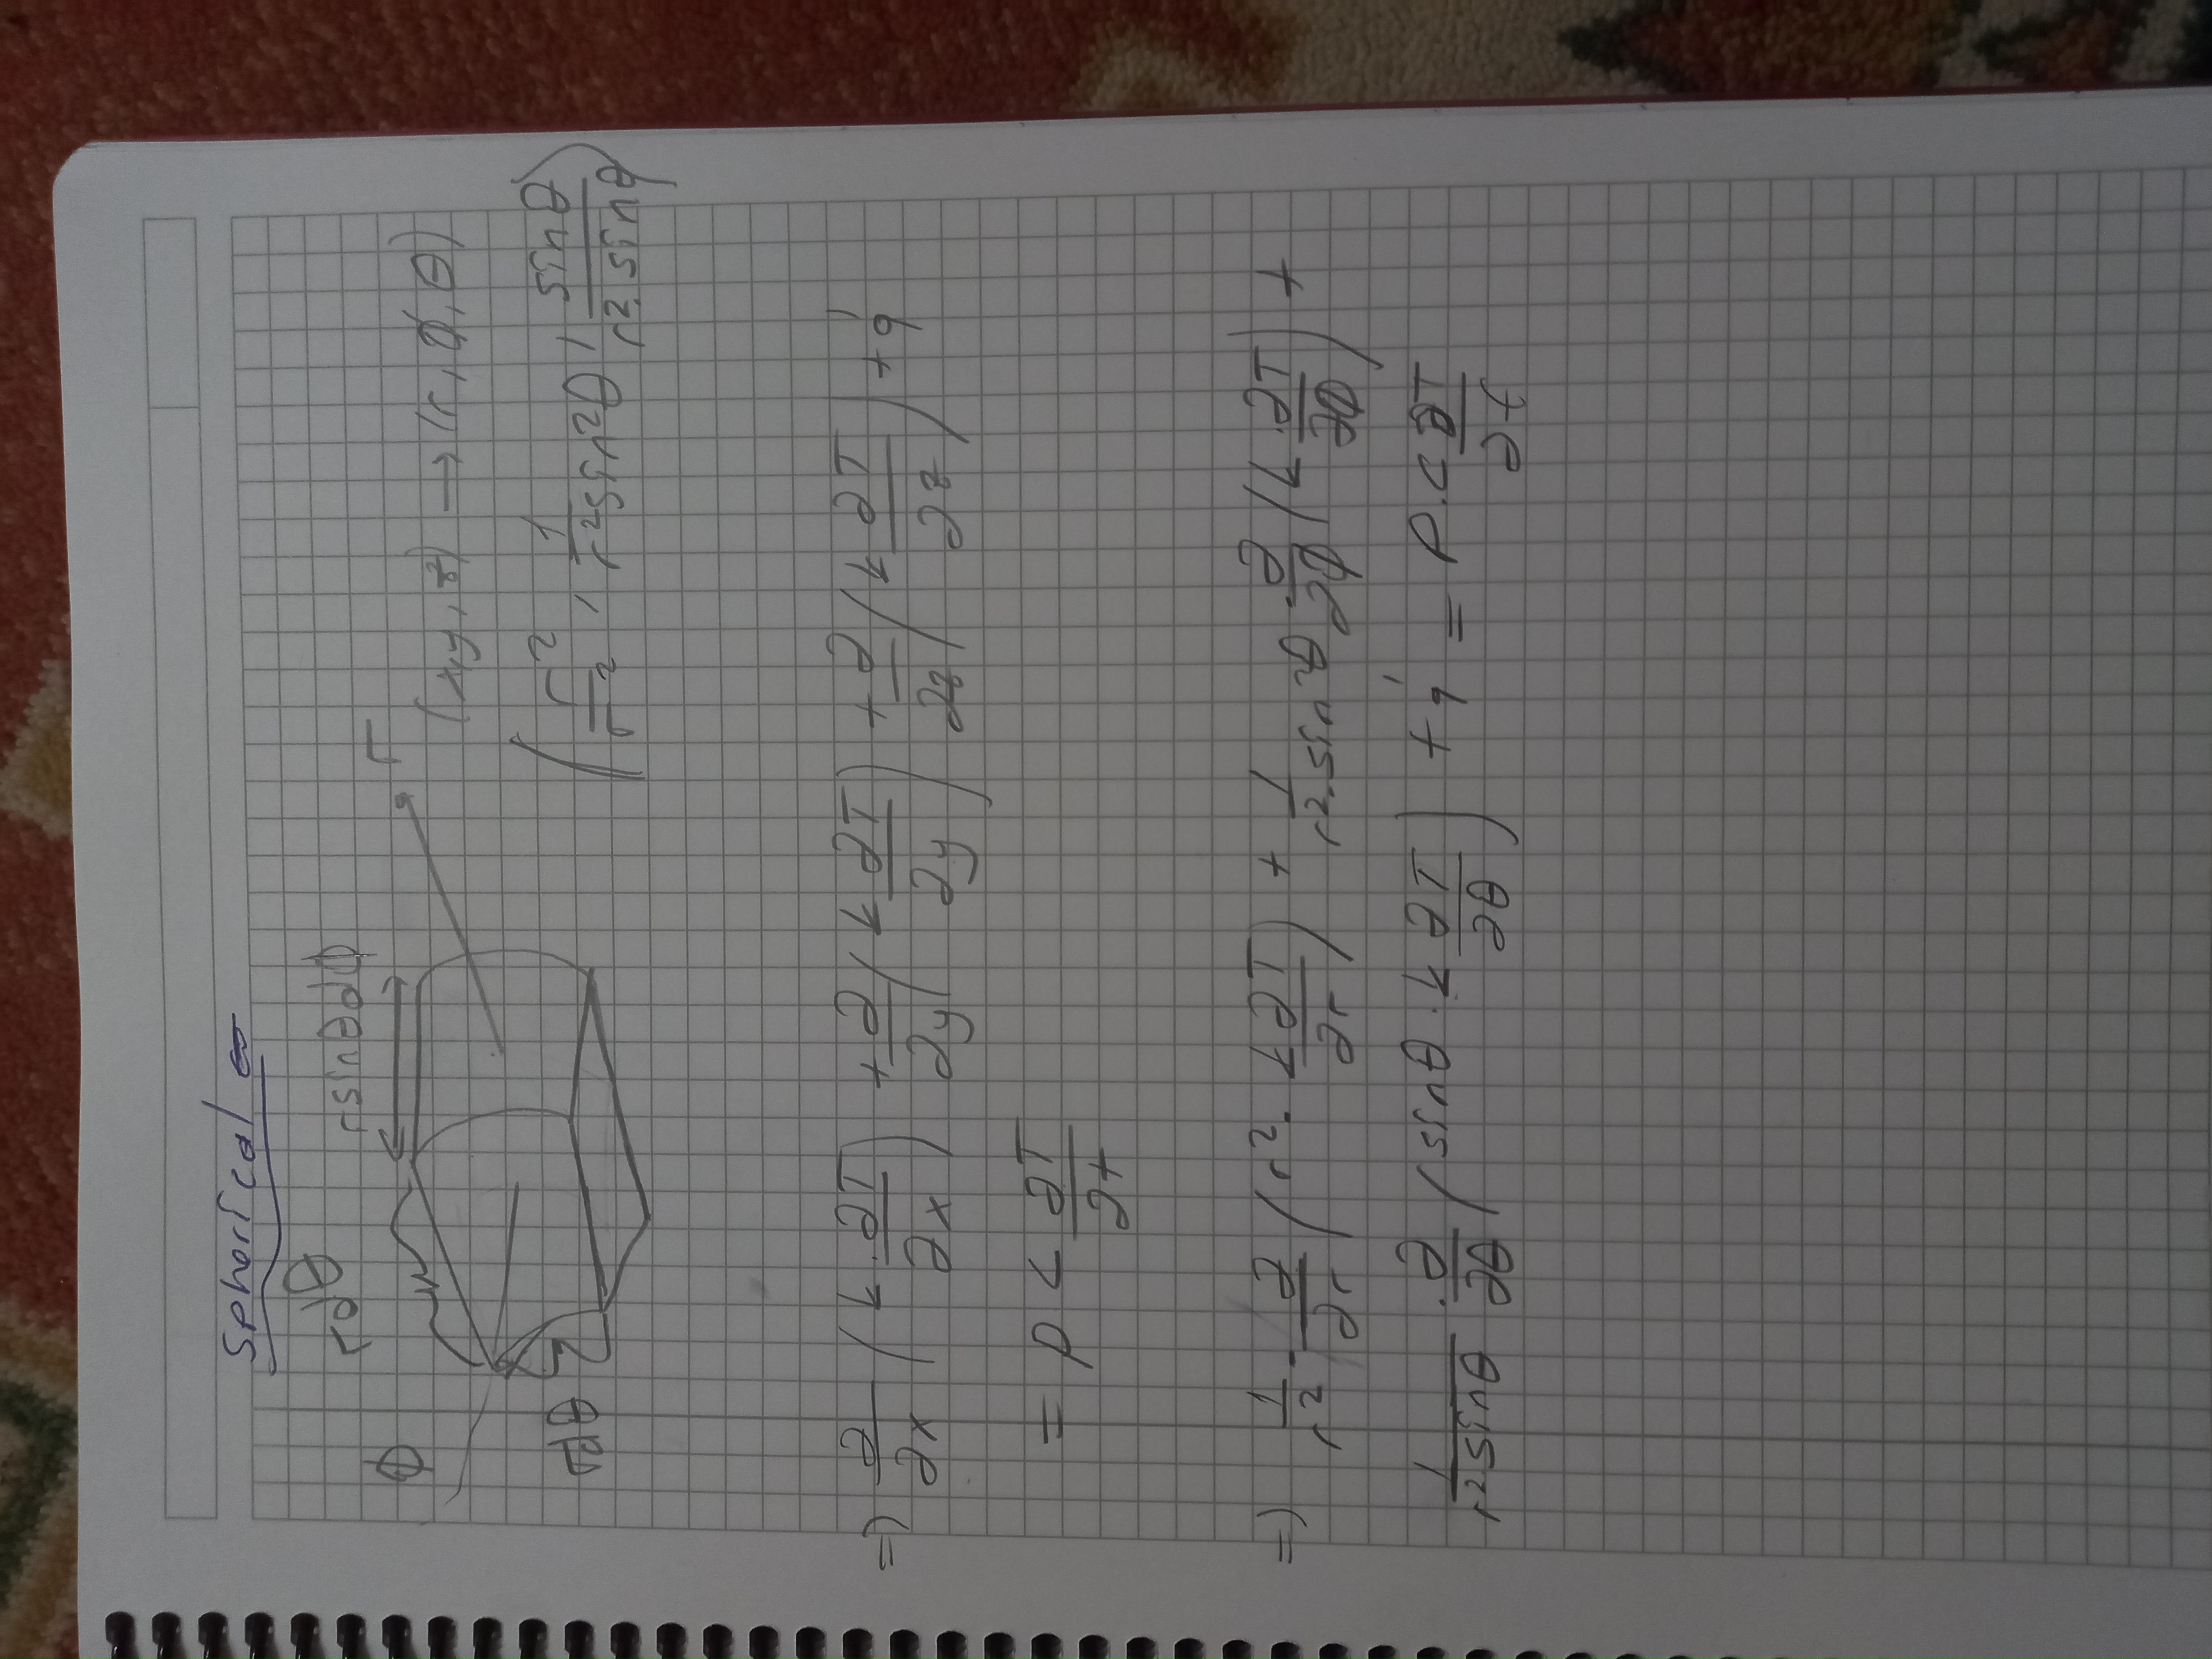 Spherical
rdθ
rsinθdϕ
ϕ
r
(x,y,z) → (r, ϕ, θ)
rdθ
(r²/r², 1/r²sin²θ, sinθ/r².sinθ)
=) ∂/∂x (k.∂T/∂x) + ∂/∂y (k ∂T/∂y) + ∂/∂z (k ∂T/∂z) + q̇
= ρ c ∂T/∂t
=) 1/r² . ∂/∂r (r². k∂T/∂r) + 1/r².sin²θ . ∂/∂ϕ (k .∂T/∂ϕ) +
1/r²sinθ . ∂/∂θ (sinθ . k ∂T/∂θ) + q̇ = ρ.c ∂T/∂t